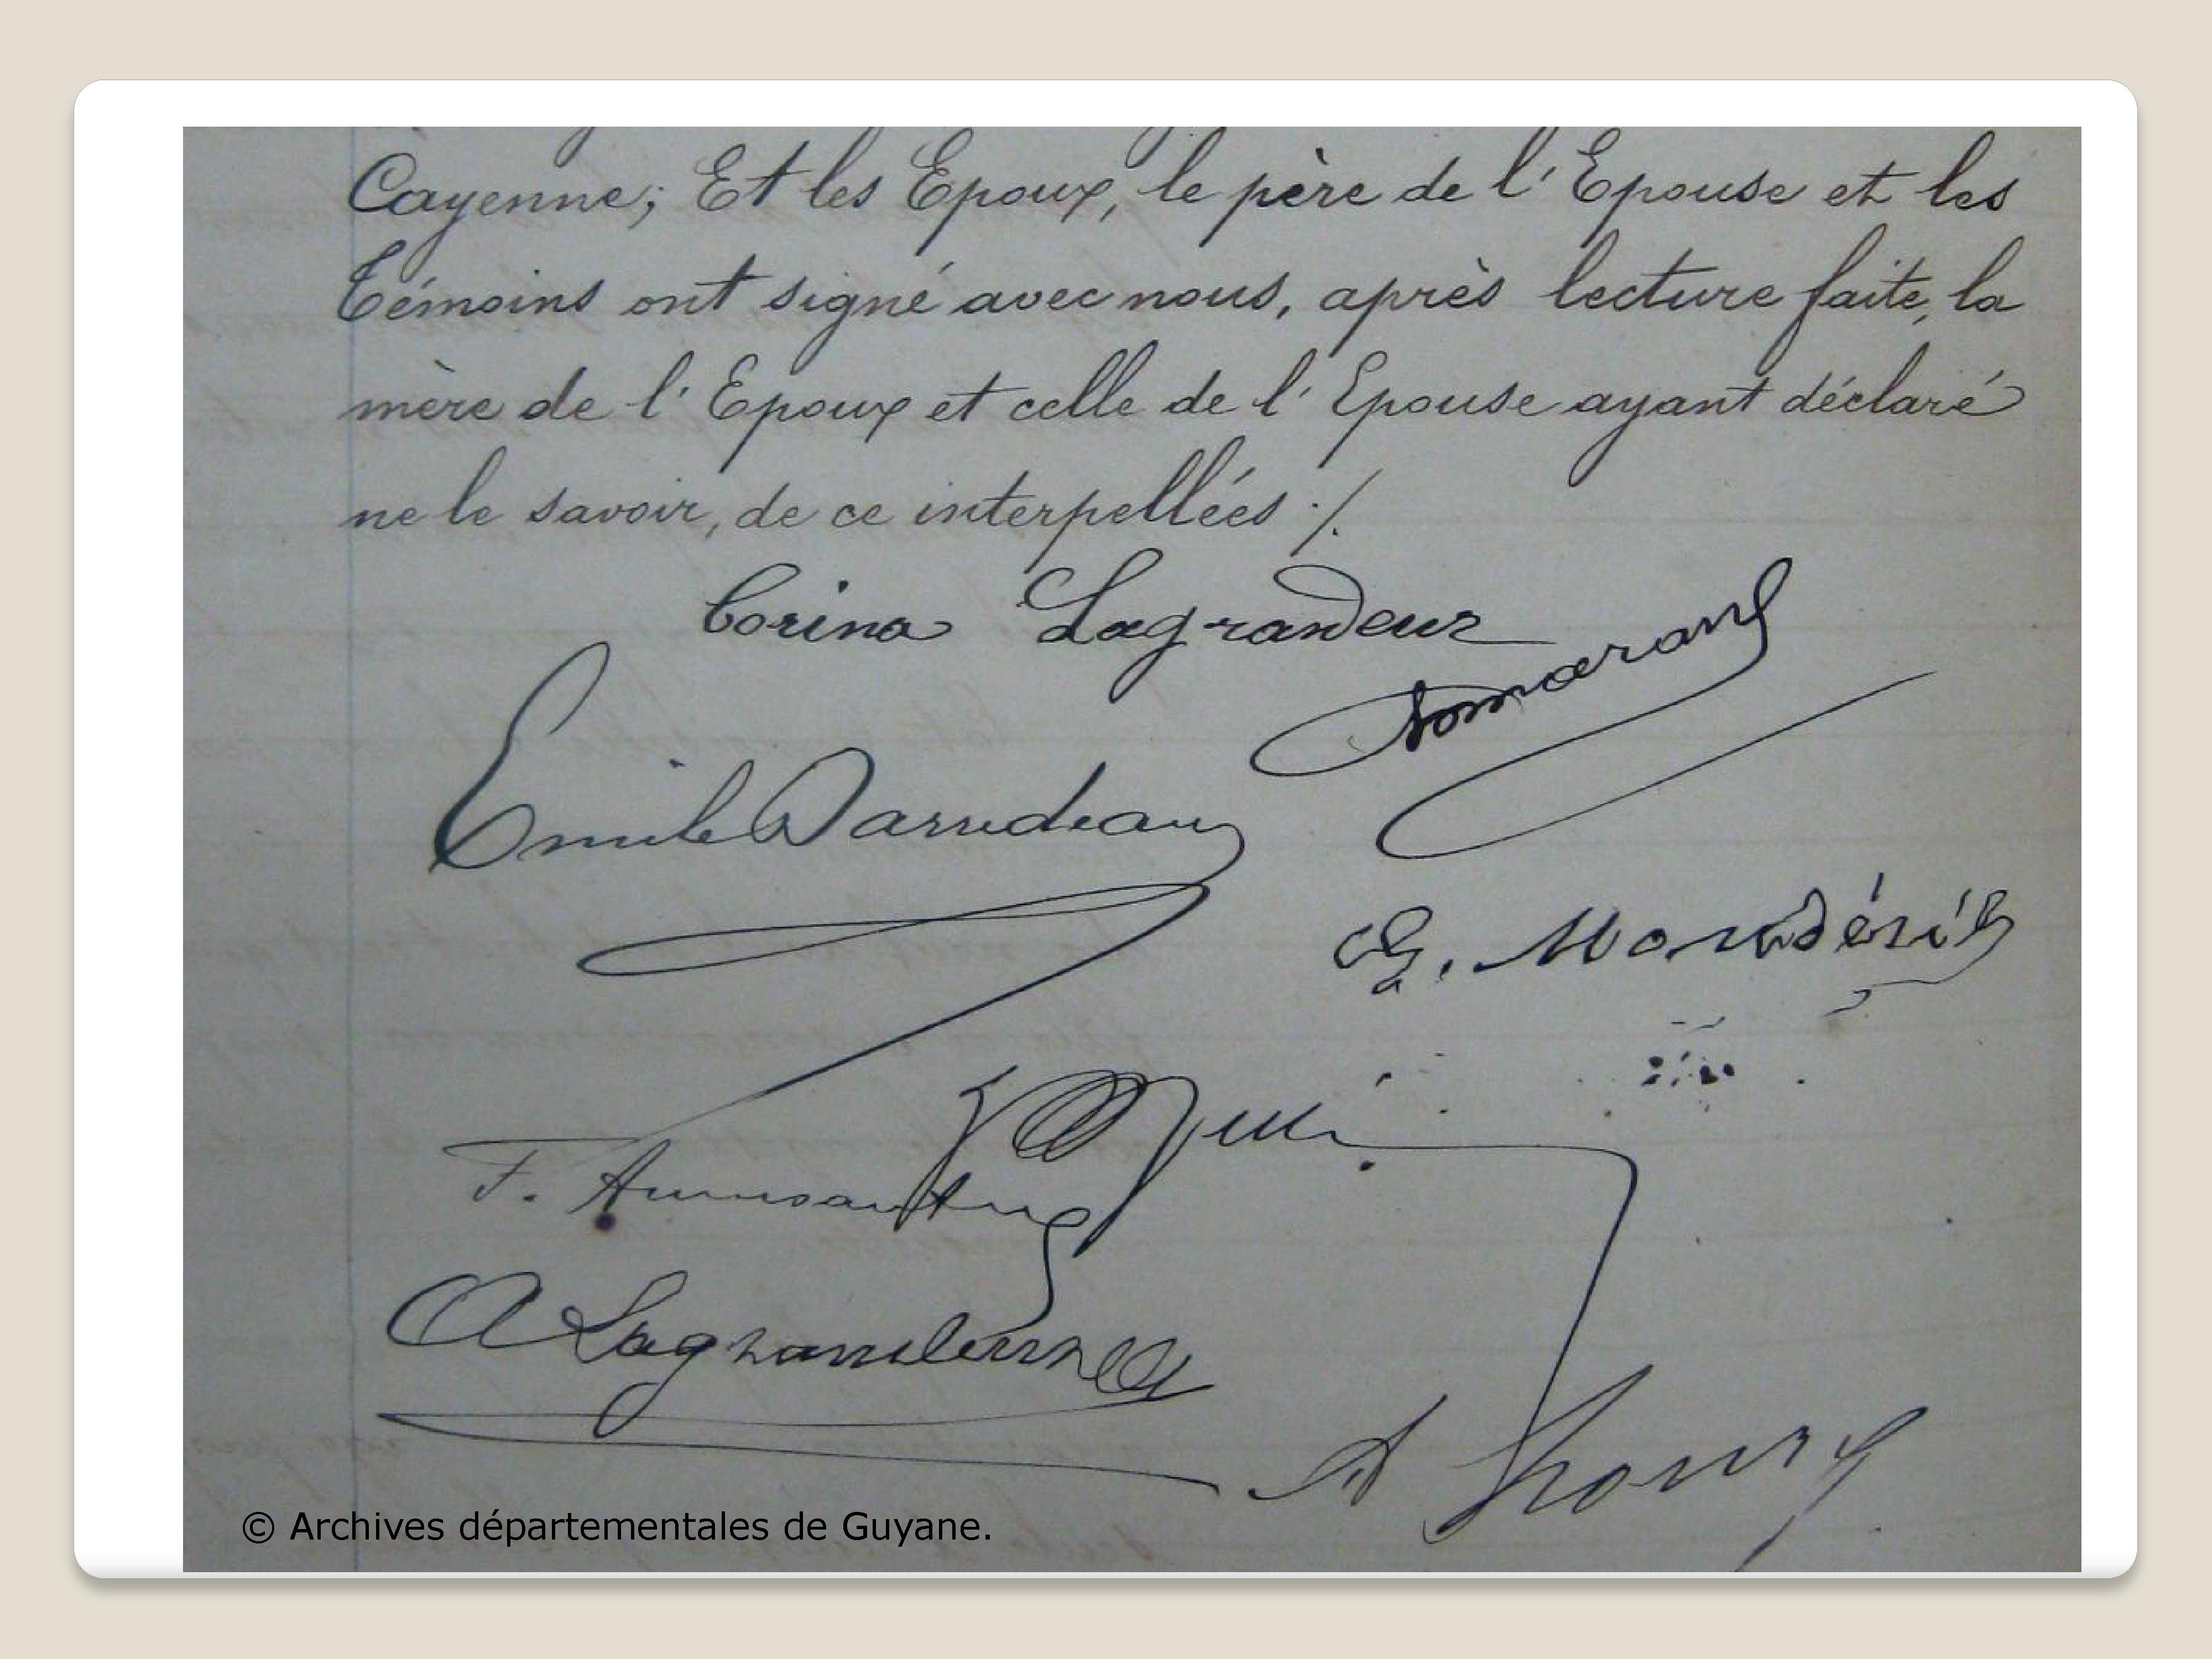 Cayenne; Et les Epoux, le père de l'Epouse et les
Témoins ont signé avec nous, après lecture faite, la
mère de l'Epoux et celle de l'Epouse ayant déclaré
ne le savoir, de ce interpellées ./.
Corina Lagrandeur
Emile Darredeau
G.
F.
A Lagrandeur
A
© Archives départementales de Guyane.